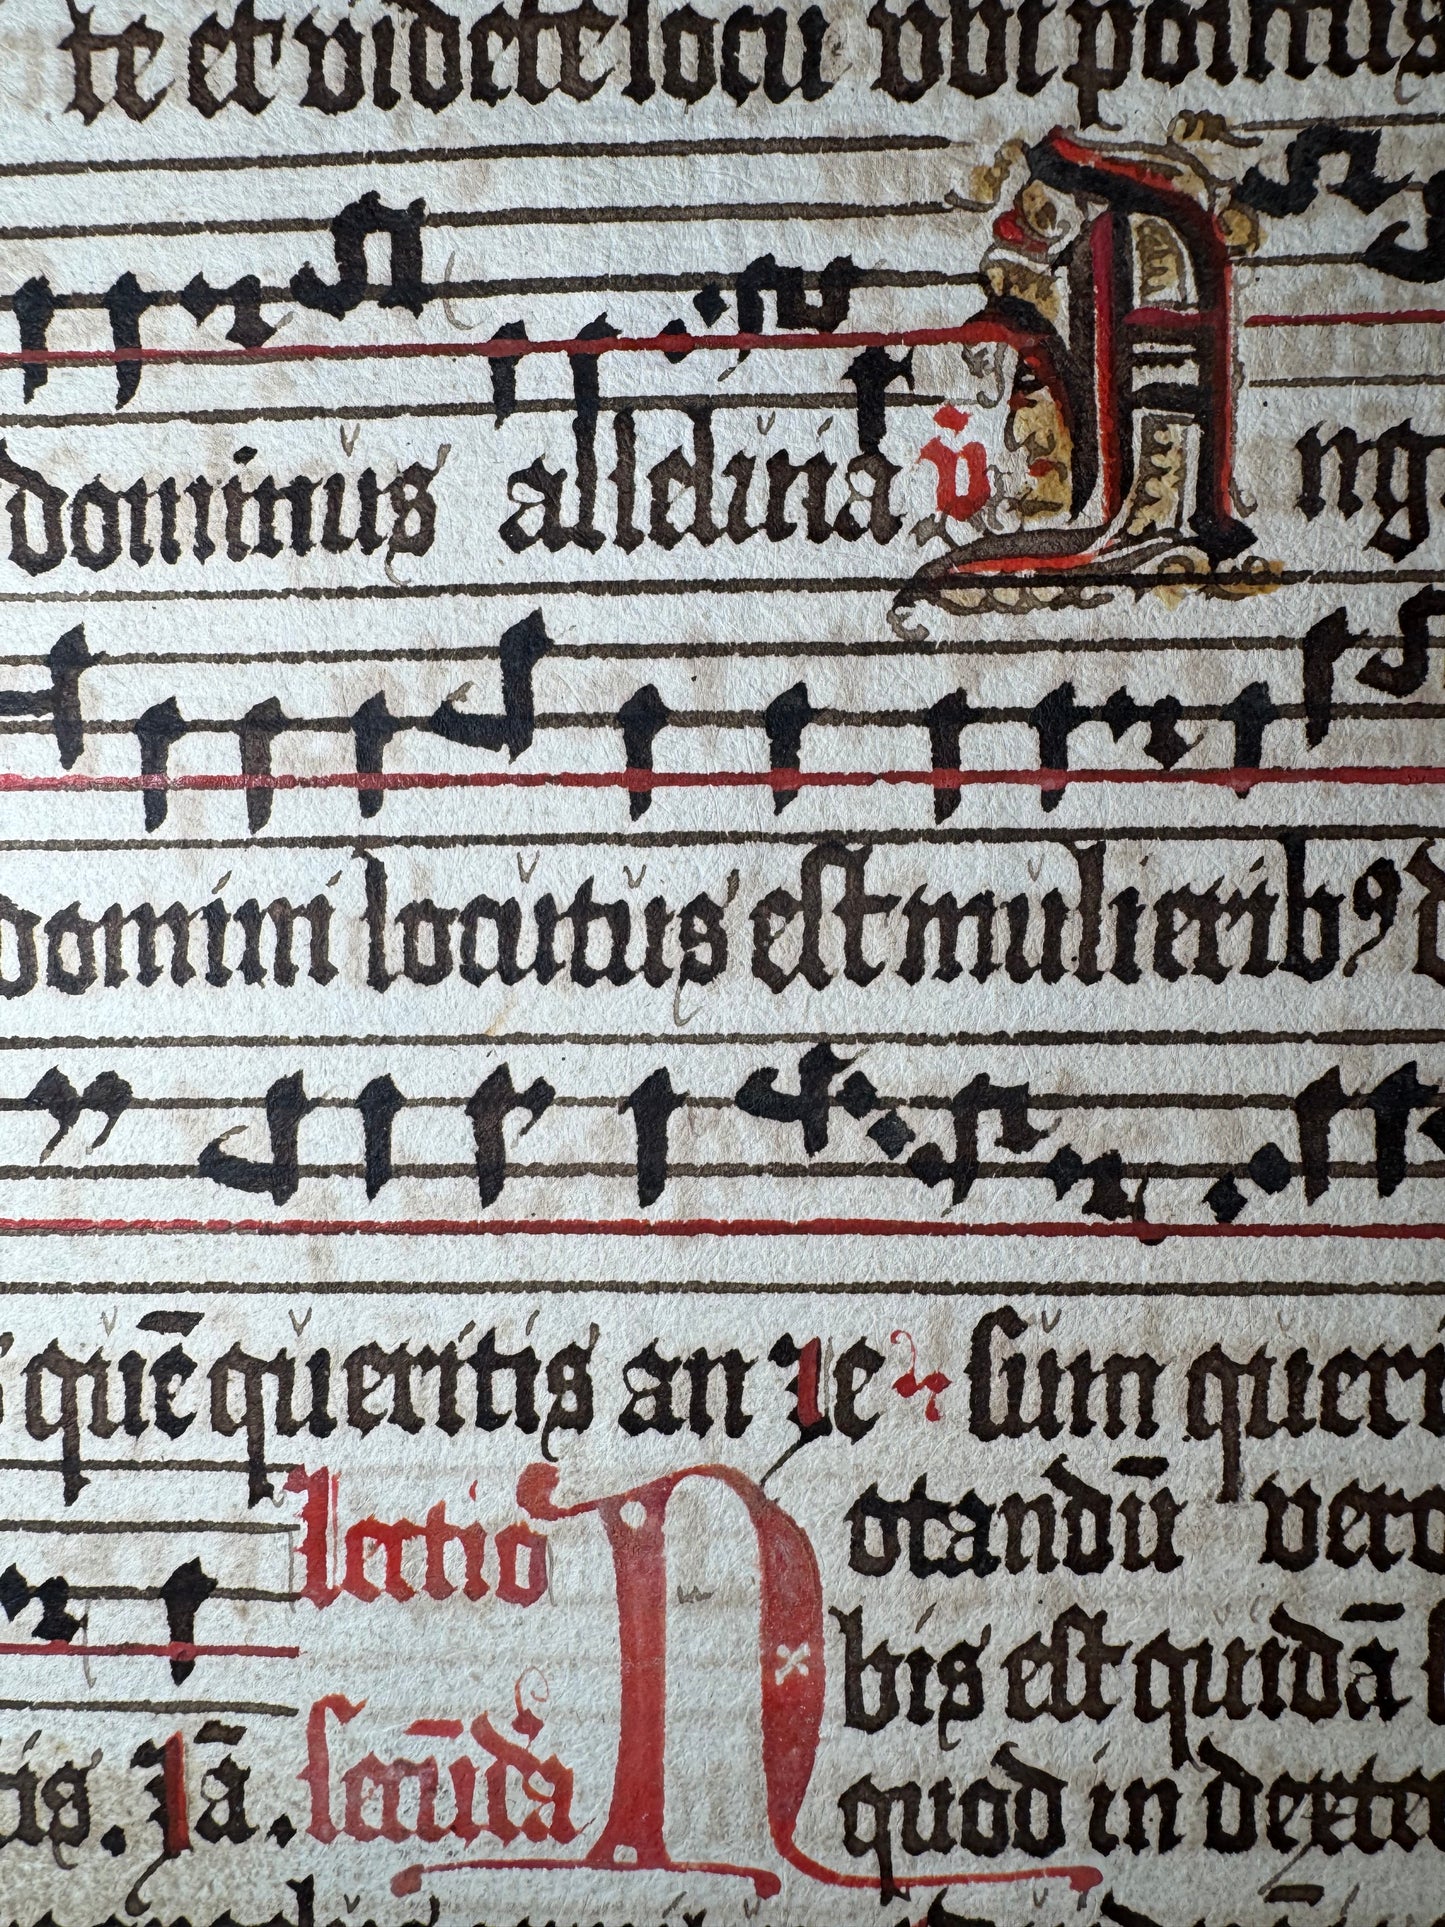 te et videte locu vbi positus
dominus alleluia v̄ Ang
domini locutus est mulierib⁹ d
quē queritis an ie sum queri
lectio Notandū vero
bis est quidā
tis. iā. secūda quod in dexte